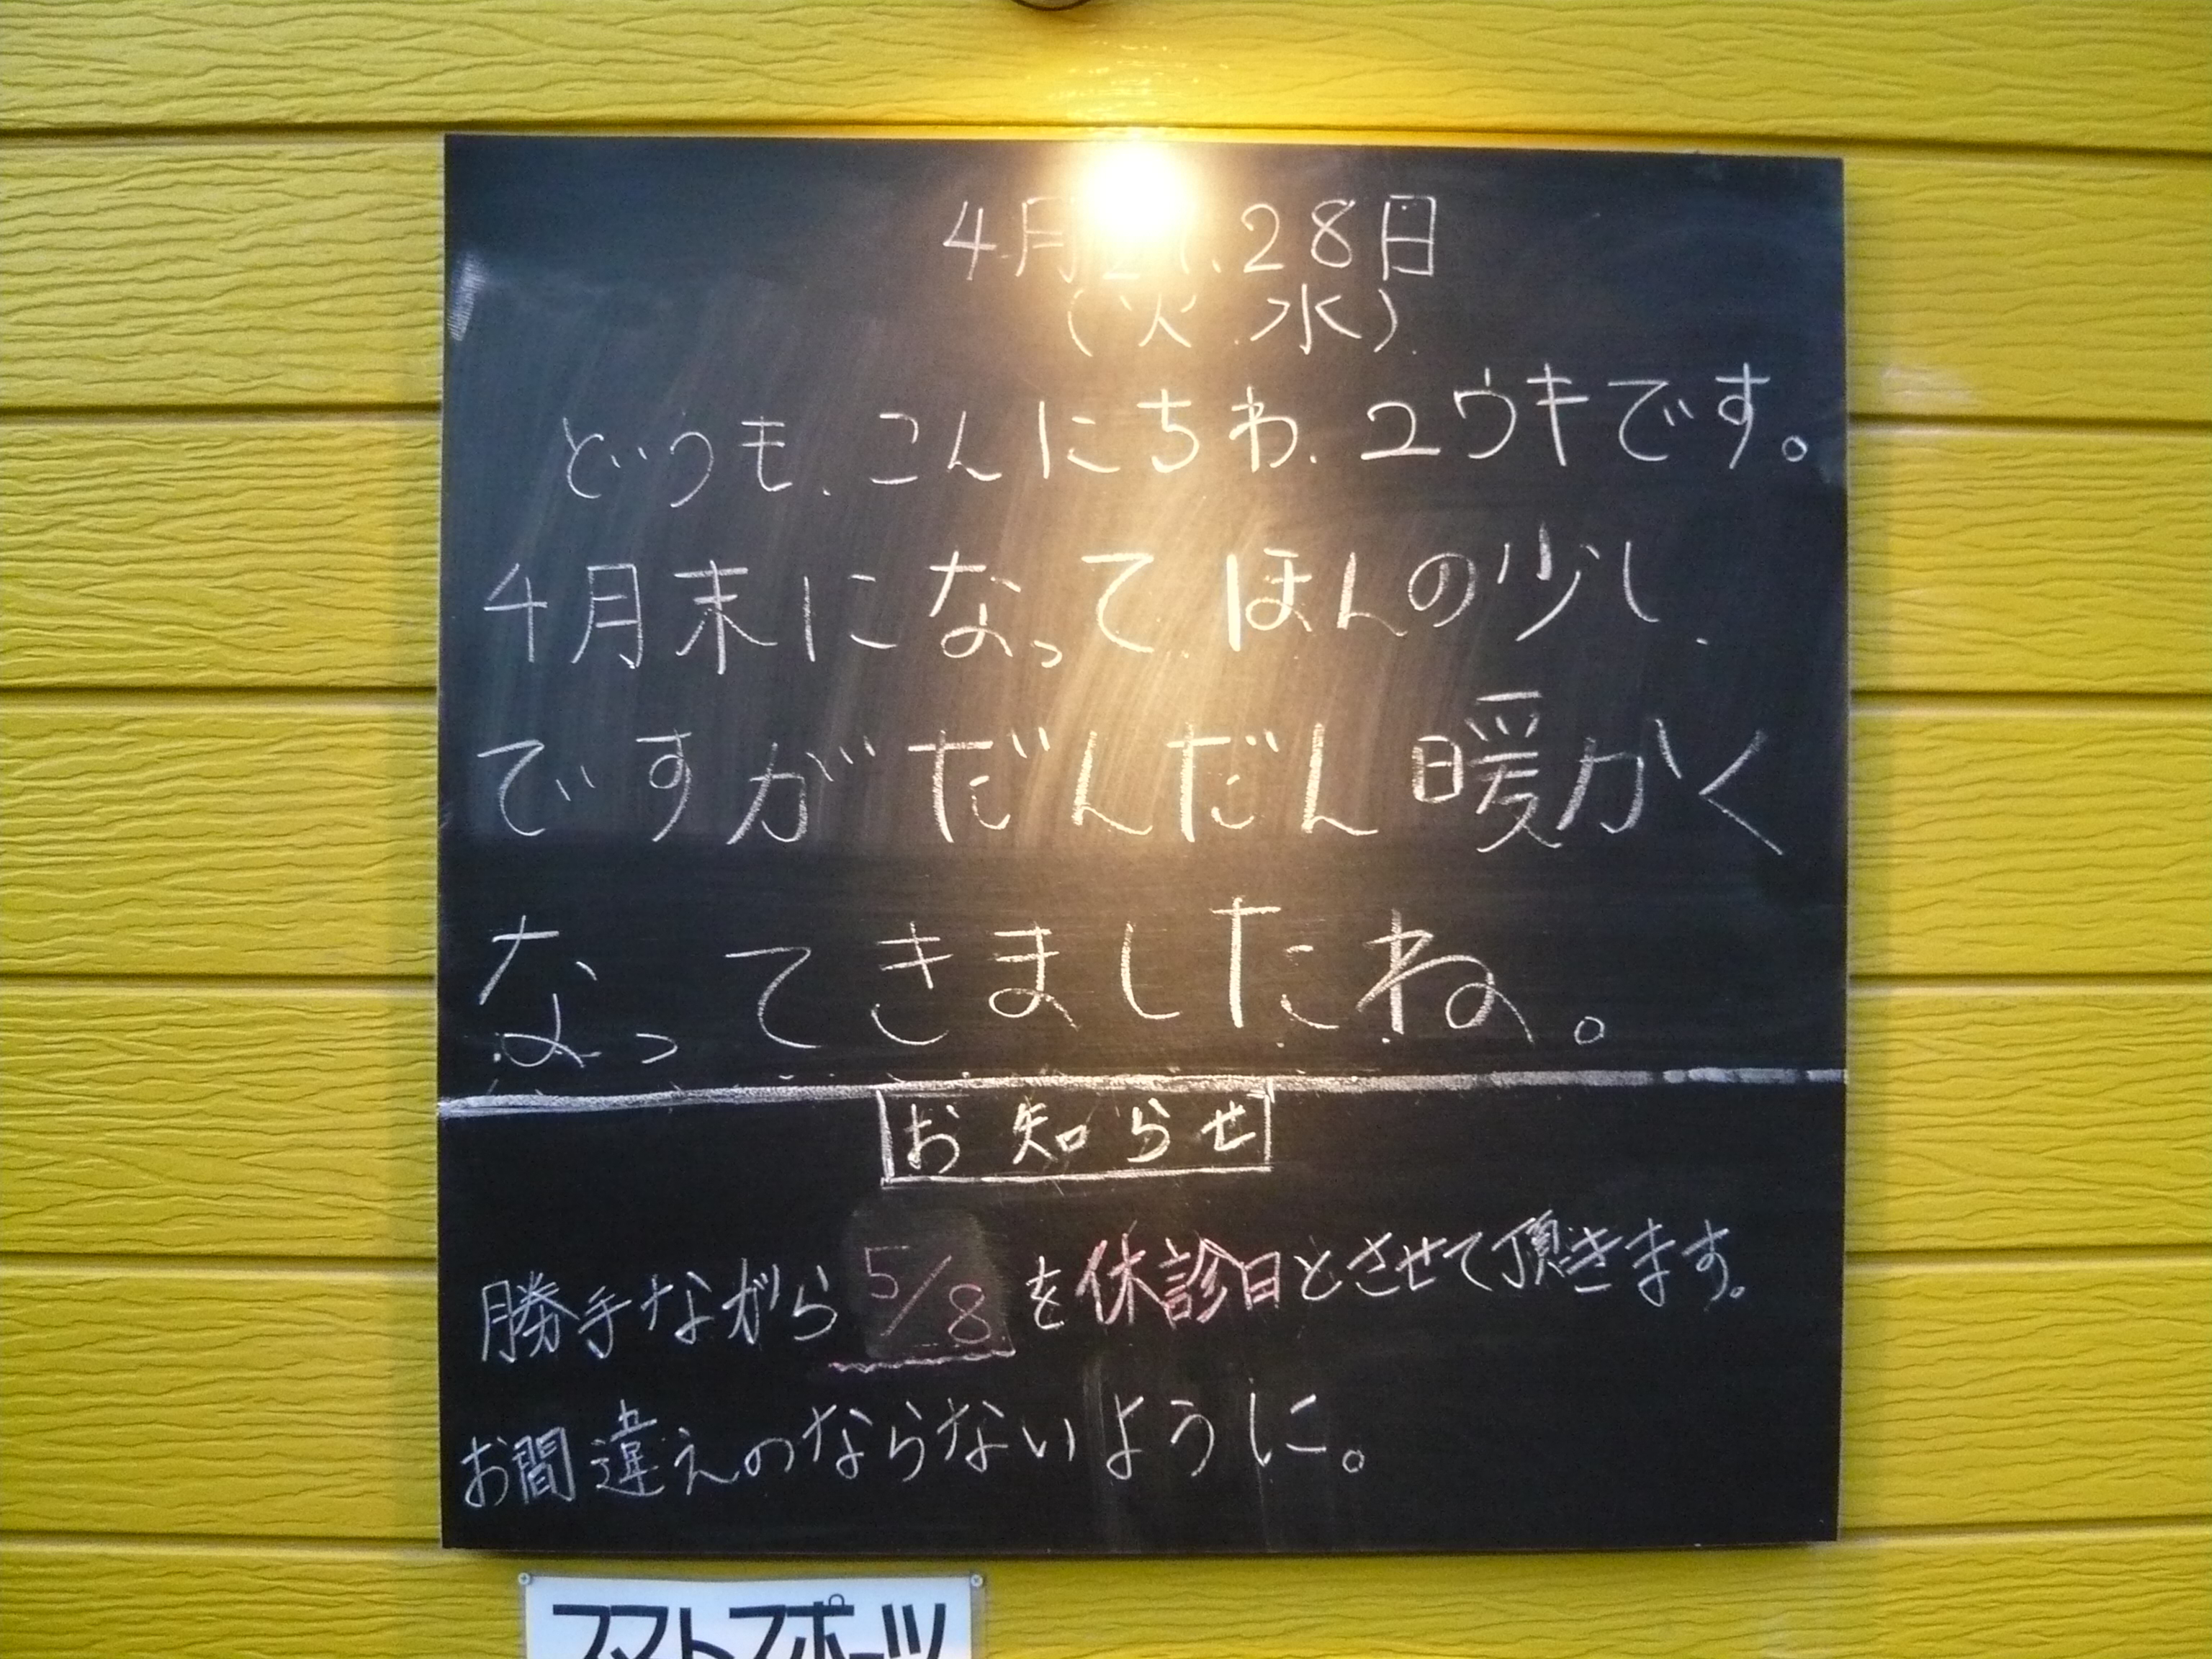 4月27.28日
(火.水)
どうも.こんにちわ.ユウキです。
4月末になって.ほんの少し.
ですがだんだん暖かく
なってきましたね。
お知らせ
勝手ながら5/8を休診日とさせて頂きます。
お間違えのならないように。